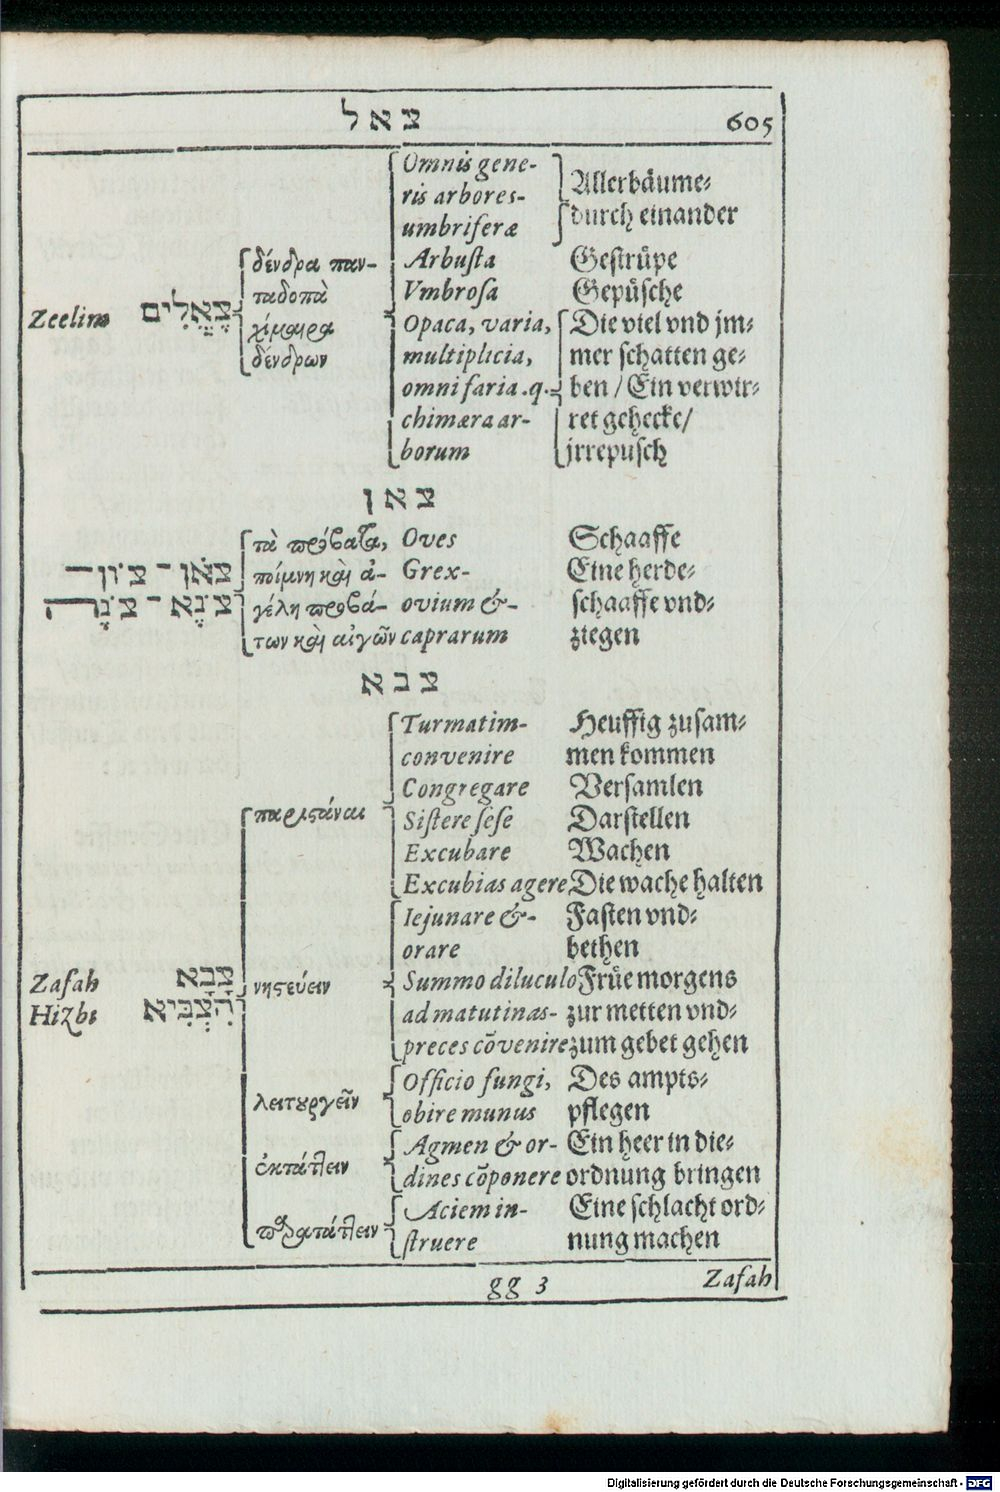 צאל 605
Omnis gene-
ris arbores-
umbriferæ
Allerbäume-
durch einander
Arbusta Gestrüpe
Vmbrosa Gepüsche
Zeelim צֶאֱלִים
δένδρα παν-
ταδοπὰ
χίμαιρα
δένδρων
Opaca, varia, Die viel vnd jm-
multiplicia, mer schatten ge-
omnifaria.q. ben / Ein verwir-
chimæra ar- ret gehecke/
borum jrrepusch
צאן
τὰ πρόβατα, Oves Schaaffe
צֹאן - צֹון ποίμνη καὶ ἀ- Grex- Eine herde-
γέλη προβά- ovium &- schaaffe vnd-
των καὶ αἰγῶν caprarum ziegen
צבא
Turmatim- Heuffig zusam-
convenire men kommen
Congregare Versamlen
παριστάναι Sistere sese Darstellen
Excubare Wachen
Excubias agere Die wache halten
Iejunare &- Fasten vnd-
orare bethen
Zafah צָבָא νηστεύειν Summo diluculo Früe morgens
Hizbi הִצְבִּיא ad matutinas- zur metten vnd-
preces cōvenire zum gebet gehen
λειτουργεῖν Officio fungi, Des ampts-
obire munus pflegen
ἐκτάττειν Agmen & or- Ein heer in die-
dines cōponere ordnung bringen
παρατάττειν Aciem in- Eine schlacht ord-
struere nung machen
gg 3 Zafah
Digitalisierung gefördert durch die Deutsche Forschungsgemeinschaft - DFG